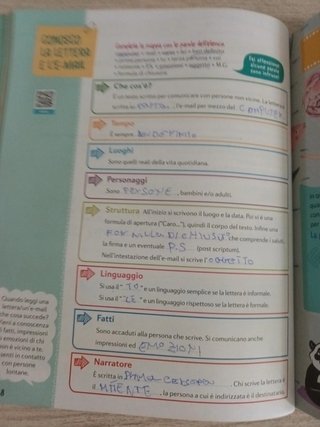 CONOSCO
LA LETTERA
E L'E-MAIL
Completa la mappa con le parole dell'elenco.
Fai attenzione:
alcune parole
sono intruse!
Che cos'è?
È un testo scritto per comunicare con persone non vicine. La lettera è
scritta su CARTA, l'e-mail per mezzo del COMPUTER
Tempo
È sempre BEN DEFINITO
Luoghi
Sono quelli reali della vita quotidiana.
Personaggi
Sono PERSONE, bambini e/o adulti.
Struttura All'inizio si scrivono il luogo e la data. Poi vi è una
formula di apertura ("Caro..."), quindi il corpo del testo. Infine una
FORMULA DI CHIUSURA che comprende i saluti,
la firma e un eventuale P.S (post scriptum).
Nell'intestazione dell'e-mail si scrive l'OGGETTO
Linguaggio
Si usa il "TU" e un linguaggio semplice se la lettera è informale.
Si usa il "LEI" e un linguaggio rispettoso se la lettera è formale.
Fatti
Sono accaduti alla persona che scrive. Si comunicano anche
impressioni ed EMOZIONI
Narratore
È scritta in PRIMA PERSONA. Chi scrive la lettera è
il MITTENTE, la persona a cui è indirizzata è il destinatario.
Quando leggi una
lettera/un'e-mail
che cosa succede?
Vieni a conoscenza
di fatti, impressioni
ed emozioni di chi
non è vicino a te.